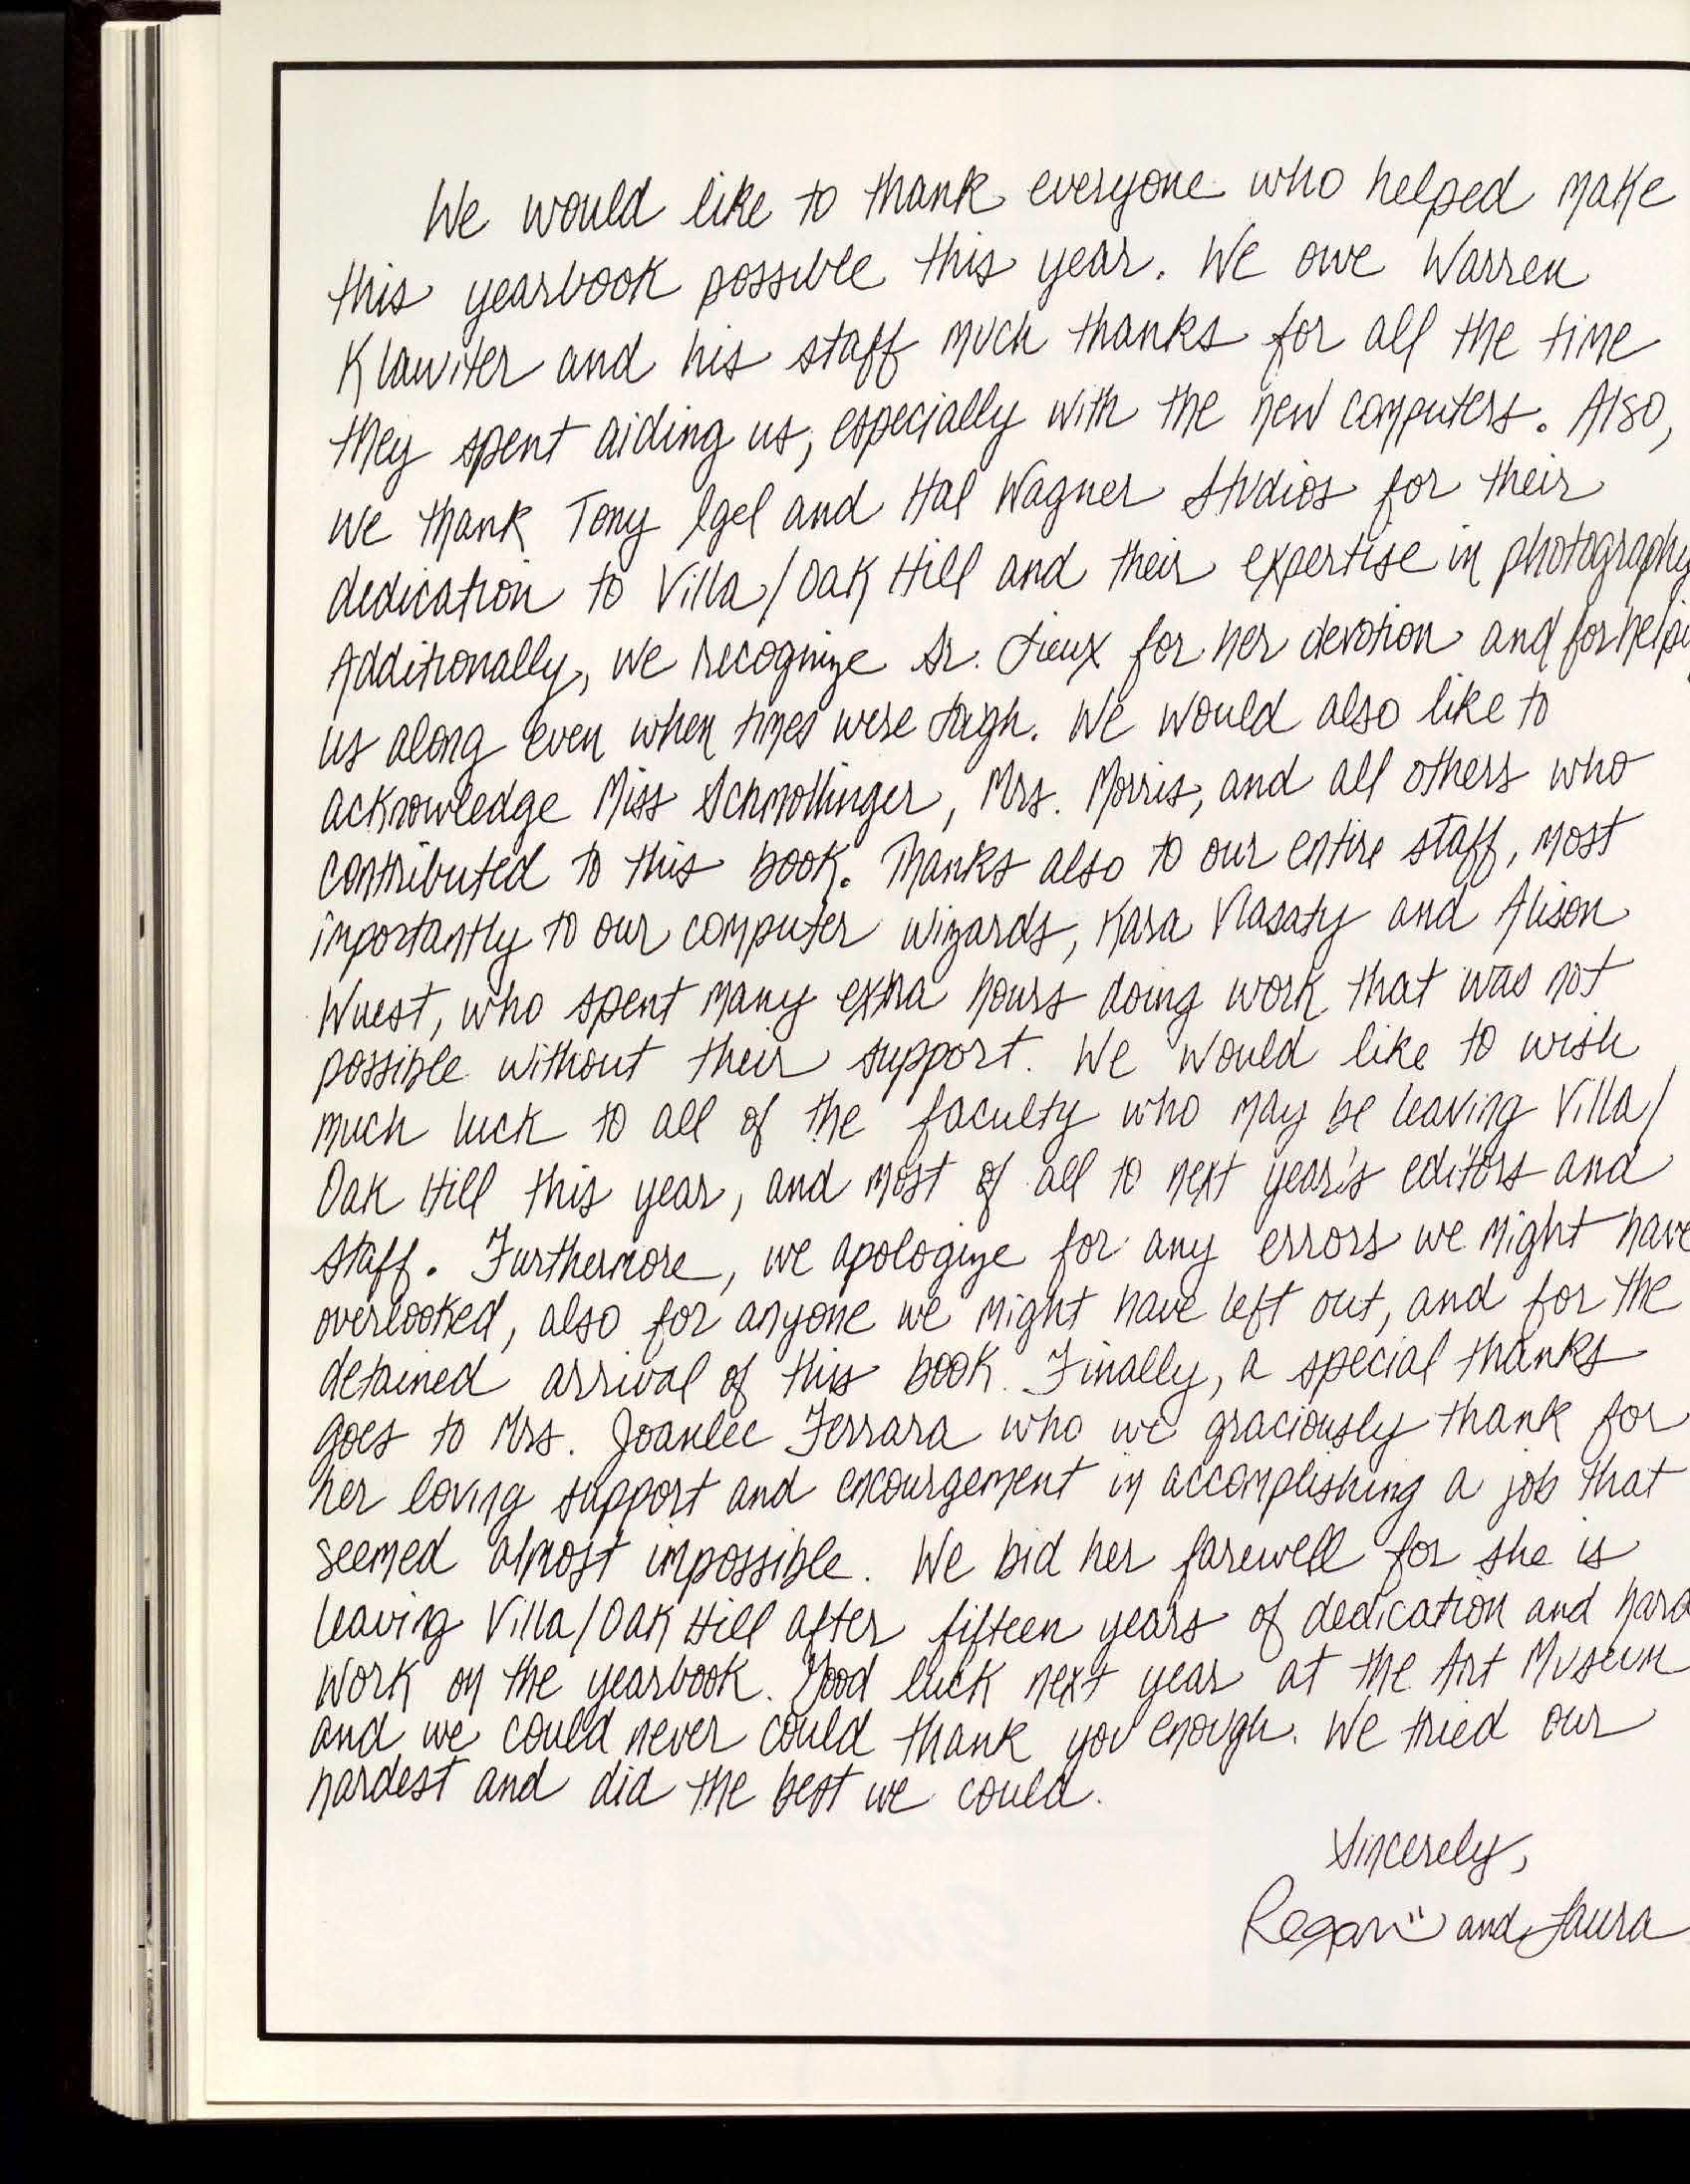 We would like to thank everyone who helped make
this yearbook possible this year. We owe Warren
Klawiter and his staff much thanks for all the time
they spent aiding us, especially with the new computers. Also,
we thank Tony Igel and Hal Wagner Studios for their
dedication to Villa/Oak Hill and their expertise in photography
Additionally, we recognize Sr. Lieux for her devotion and for helpi
us along even when times were tough. We would also like to
acknowledge Miss Schmollinger, Mrs. Morris, and all others who
contributed to this book. Thanks also to our entire staff, most
importantly to our computer wizards, Kara Vlasaty and Alison
Wuest, who spent many extra hours doing work that was not
possible without their support. We would like to wish
much luck to all of the faculty who may be leaving Villa/
Oak Hill this year, and most of all to next year's editors and
staff. Furthermore, we apologize for any errors we might have
overlooked, also for anyone we might have left out, and for the
detained arrival of this book. Finally, a special thanks
goes to Mrs. Joanlee Ferrara who we graciously thank for
her loving support and encourgement in accomplishing a job that
seemed almost impossible. We bid her farewell for she is
leaving Villa/Oak Hill after fifteen years of dedication and hard
work on the yearbook. Good luck next year at the Art Museum
and we could never could thank you enough. We tried our
hardest and did the best we could.
Sincerely,
Regan and Laura